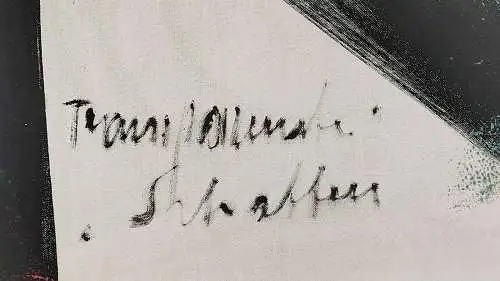 Transparente
Schatten